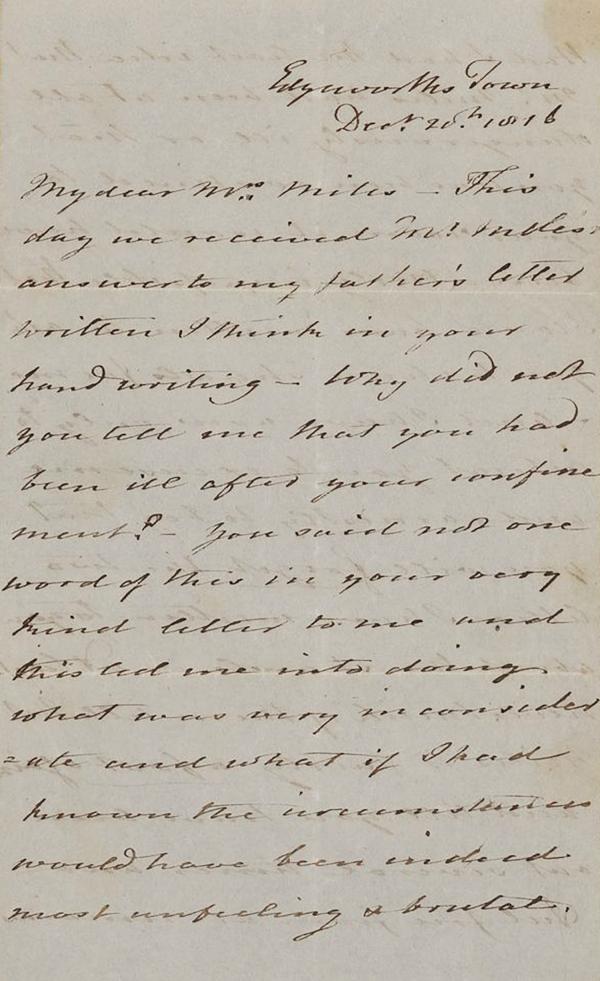 Edgeworths Town
Decr. 20th. 1816
My dear Mrs. Miles – This
day we received Mr. Miles's
answer to my father's letter
written I think in your
hand writing – Why did not
you tell me that you had
been ill after your confine
ment? – You said not one
word of this in your very
kind letter to me and
this led me into doing
what was very inconsider
=ate and what if I had
known the circumstances
would have been indeed
most unfeeling & brutal.